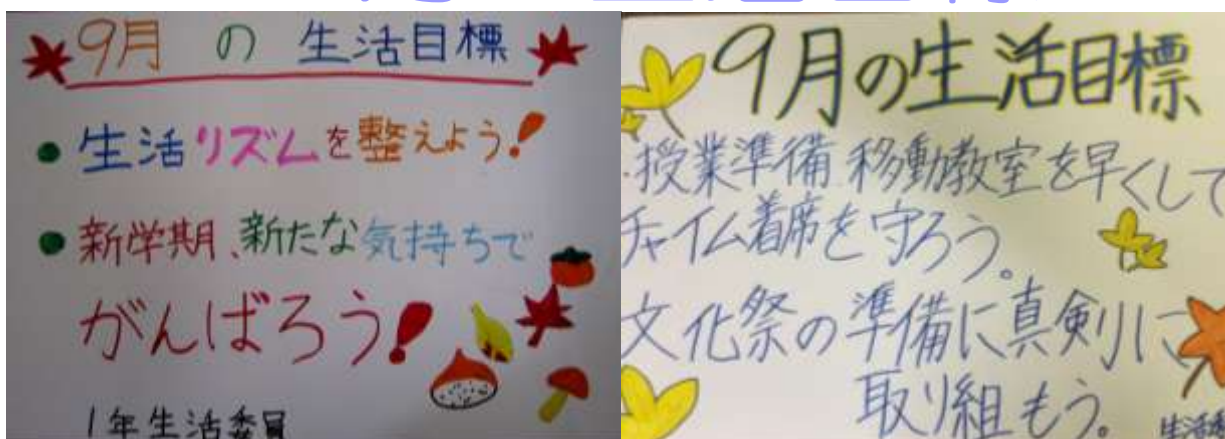 9月の生活目標
●生活リズムを整えよう!
●新学期、新たな気持ちで
がんばろう!
1年生活委員
9月の生活目標
.授業準備 移動教室を早くして
チャイム着席を守ろう。
文化祭の準備に真剣に
取り組もう。
生活委